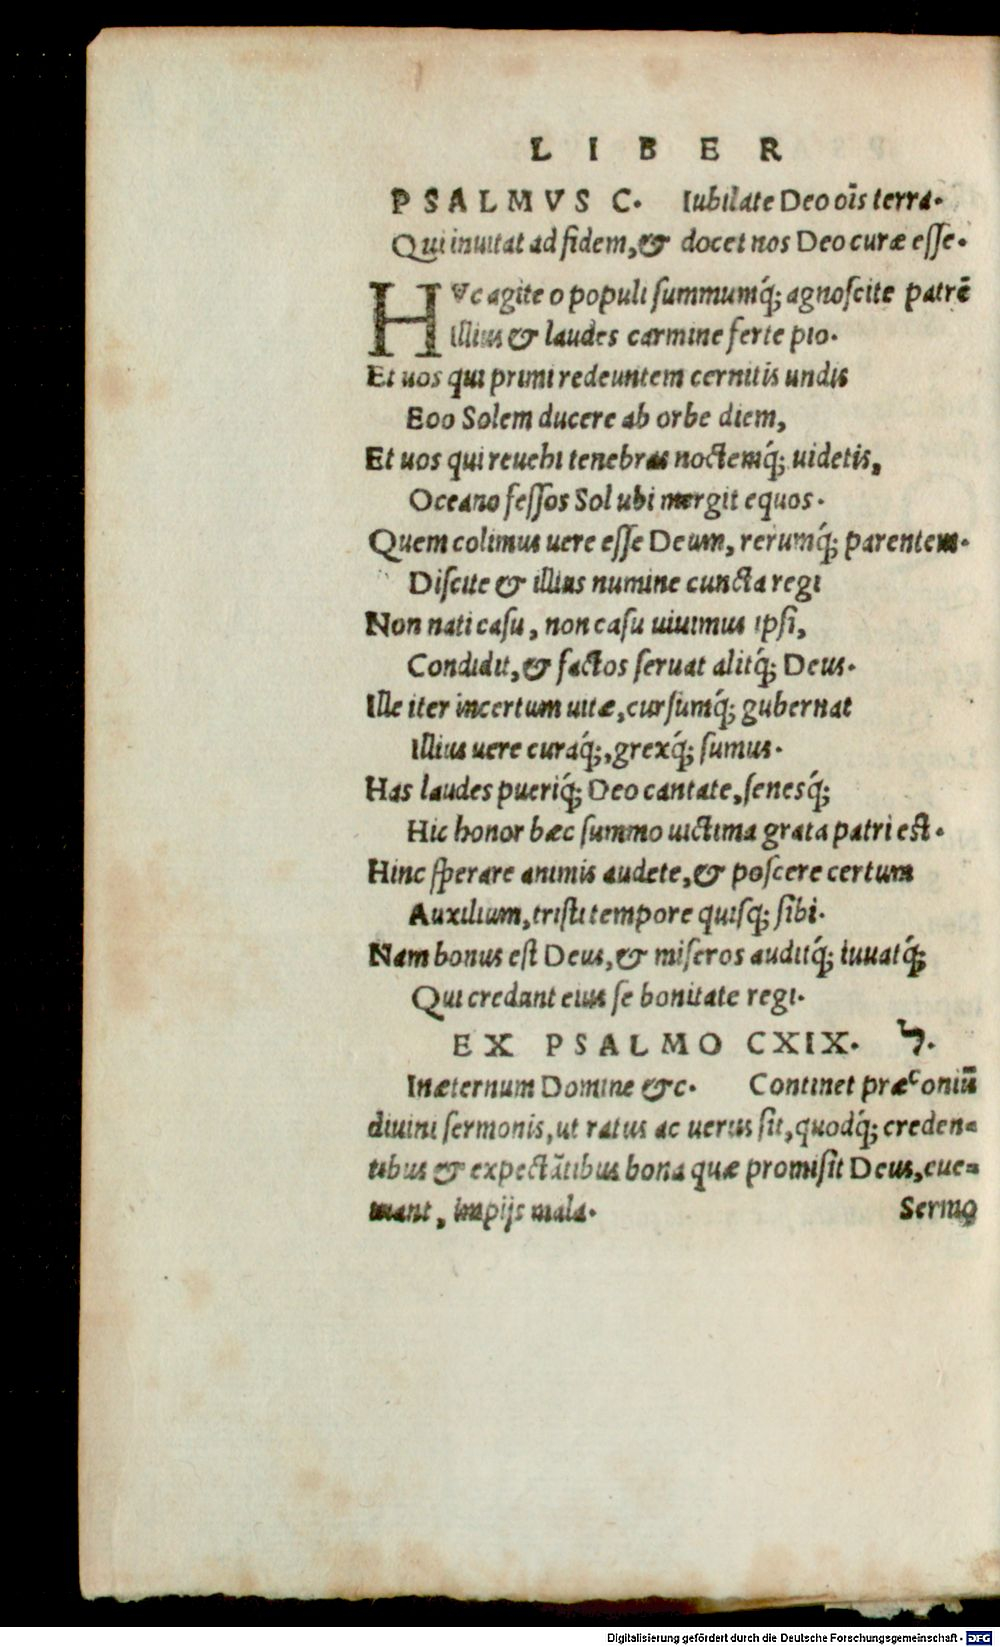 LIBER
PSALMVS C. Iubilate Deo oīs terra.
Qui inuitat ad fidem, & docet nos Deo curæ esse.
HVc agite o populi summumq́; agnoscite patrē
Illius & laudes carmine ferte pio.
Et uos qui primi redeuntem cernitis undis
Eoo Solem ducere ab orbe diem,
Et uos qui reuehi tenebras noctemq́; uidetis,
Oceano fessos Sol ubi mergit equos.
Quem colimus uere esse Deum, rerumq́; parentem.
Discite & illius numine cuncta regi
Non nati casu, non casu uiuimus ipsi,
Condidit, & factos seruat alitq́; Deus.
Ille iter incertum uitæ, cursumq́; gubernat
Illius uere curaq́;, grexq́; sumus.
Has laudes pueriq́; Deo cantate, senesq́;
Hic honor hæc summo uictima grata patri est.
Hinc sperare animis audete, & poscere certum
Auxilium, tristi tempore quisq; sibi.
Nam bonus est Deus, & miseros auditq́; iuuatq́;
Qui credant eius se bonitate regi.
EX PSALMO CXIX. ל.
Inæternum Domine &c. Continet præconiū
diuini sermonis, ut ratus ac uerus sit, quodq́; creden=
tibus & expectātibus bona quæ promisit Deus, eue=
niant, impijs mala. Sermo
Digitalisierung gefördert durch die Deutsche Forschungsgemeinschaft - DFG